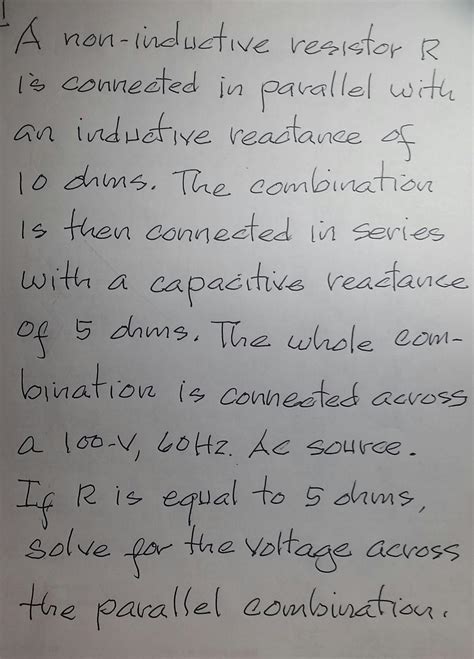 A non-inductive resistor R
is connected in parallel with
an inductive reactance of
10 ohms. The combination
is then connected in series
with a capacitive reactance
of 5 ohms. The whole com-
bination is connected across
a 100-V, 60Hz. Ac source.
If R is equal to 5 ohms,
solve for the voltage across
the parallel combination.